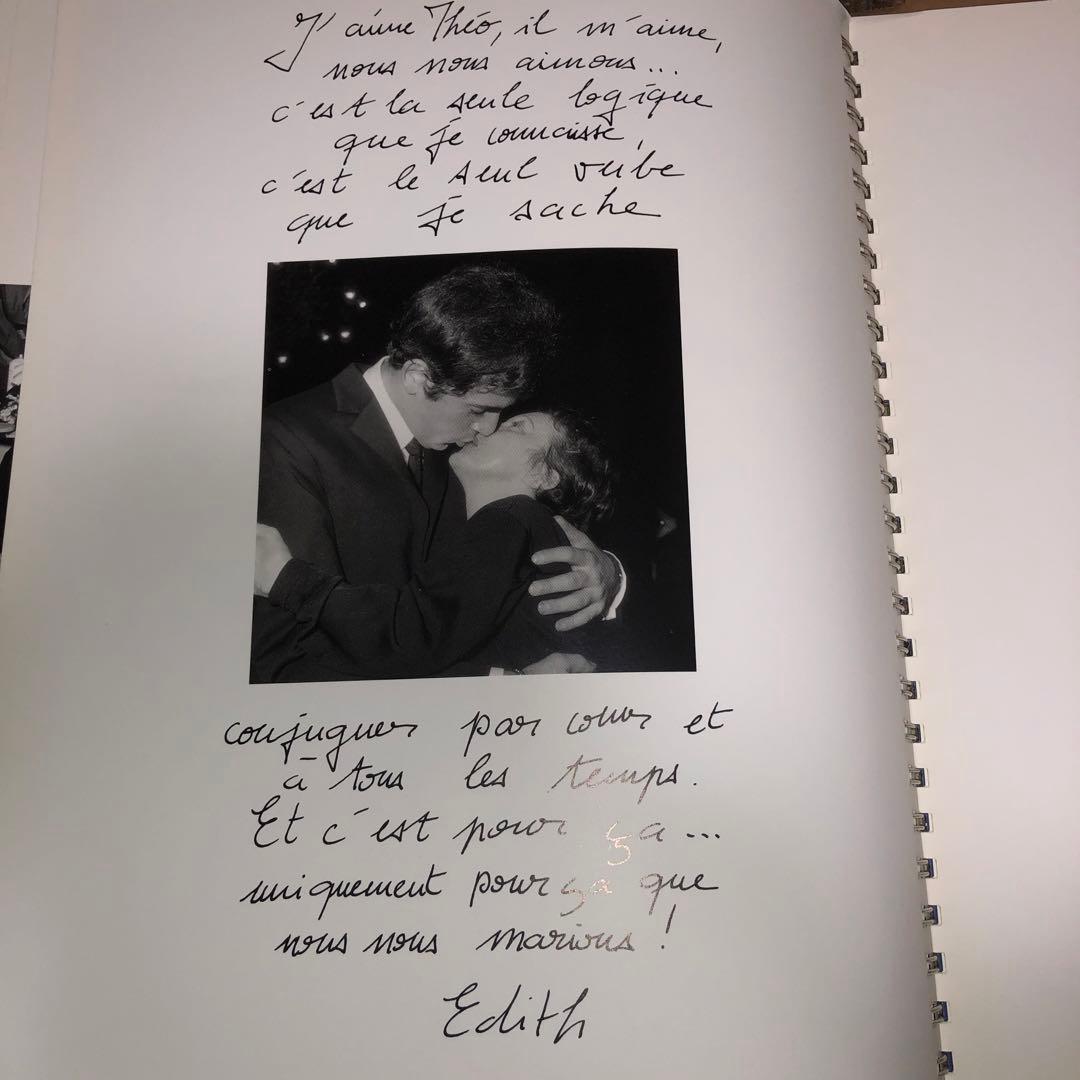 J'aime Théo, il m'aime,
nous nous aimons...
c'est la seule logique
que je connaisse,
c'est le seul verbe
que je sache
conjuguer par cœur et
à tous les temps.
Et c'est pour ça...
uniquement pour ça que
nous nous marions !
Edith